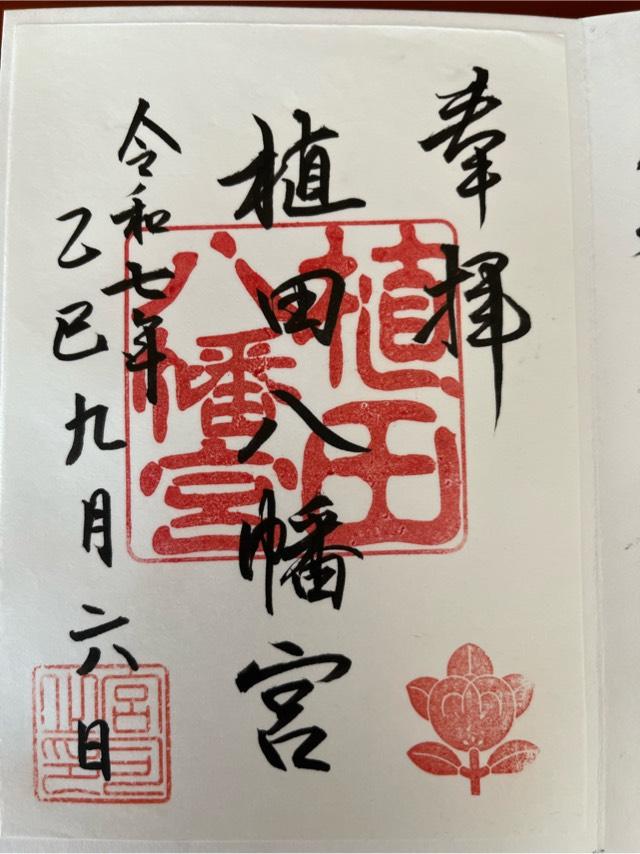 奉拝
植田八幡宮
令和七年
乙巳九月六日
植田
八幡宮
宮司
之印